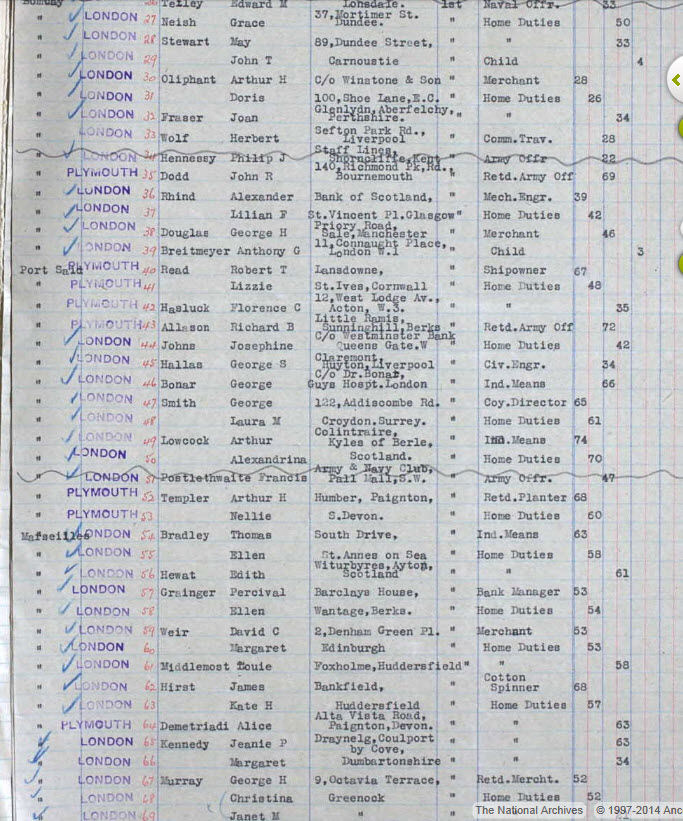 Bombay LONDON 26 Tetley Edward M Lonsdale. 1st Naval Offr. 33
LONDON 27 Neish Grace 37,Mortimer St. Dundee. " Home Duties 50
" LONDON 28 Stewart May 89,Dundee Street, " " 33
" LONDON 29 John T Carnoustie " Child 4
" LONDON 30 Oliphant Arthur H C/o Winstone & Son " Merchant 28
" LONDON 31 Doris 100,Shoe Lane,E.C. " Home Duties 26
" LONDON 32 Fraser Joan Glenlydn,Aberfelchy, Perthshire. " " 34
" LONDON 33 Wolf Herbert Sefton Park Rd., Liverpool " Comm.Trav. 28
" LONDON 34 Hennessy Philip J Staff Lines, Shorncliffe,Kent " Army Offr 22
" PLYMOUTH 35 Dodd John R 140,Richmond Pk,Rd., Bournemouth " Retd.Army Off 69
" LONDON 36 Rhind Alexander Bank of Scotland, " Mech.Engr. 39
" LONDON 37 Lilian F St.Vincent Pl.Glasgow" Home Duties 42
" LONDON 38 Douglas George H Priory Road, Sale,Manchester " Merchant 46
" LONDON 39 Breitmeyer Anthony G 11,Connaught Place, London W.1 " Child 3
Port Said PLYMOUTH 40 Read Robert T Lansdowne, " Shipowner 67
" PLYMOUTH 41 Lizzie St.Ives,Cornwall " Home Duties 48
" PLYMOUTH 42 Hasluck Florence C 12,West Lodge Av., Acton, W.3. " " 35
" PLYMOUTH 43 Allason Richard B Little Ramis, Sunninghill,Berks " Retd.Army Off 72
" LONDON 44 Johns Josephine C/o Westminster Bank Queens Gate.W " Home Duties 42
" LONDON 45 Hallas George S Claremont, Huyton,Liverpool " Civ.Engr. 34
" LONDON 46 Bonar George C/o Dr.Bonar, Guys Hospt.London " Ind.Means 66
" LONDON 47 Smith George 122,Addiscombe Rd. " Coy.Director 65
" LONDON 48 Laura M Croydon.Surrey. " Home Duties 61
" LONDON 49 Lowcock Arthur Colintraire, Kyles of Berle, " Ind.Means 74
" LONDON 50 Alexandrina Scotland. " Home Duties 70
" LONDON 51 Postlethwaite Francis Army & Navy Club, Pall Mall,S.W. " Army Offr. 47
" PLYMOUTH 52 Templer Arthur H Humber, Paignton, " Retd.Planter 68
" PLYMOUTH 53 Nellie S.Devon. " Home Duties 60
Marseilles LONDON 54 Bradley Thomas South Drive, " Ind.Means 63
" LONDON 55 Ellen St.Annes on Sea " Home Duties 58
" LONDON 56 Hewat Edith Witurbyres,Ayton, Scotland " " 61
" LONDON 57 Grainger Percival Barclays House, " Bank Manager 53
" LONDON 58 Ellen Wantage,Berks. " Home Duties 54
" LONDON 59 Weir David C 2,Denham Green Pl. " Merchant 53
" LONDON 60 Margaret Edinburgh " Home Duties 53
" LONDON 61 Middlemost Louie Foxholme,Huddersfield" " 58
" LONDON 62 Hirst James Bankfield, " Cotton Spinner 68
" LONDON 63 Kate H Huddersfield " Home Duties 57
" PLYMOUTH 64 Demetriadi Alice Alta Vista Road, Paignton,Devon. " " 63
" LONDON 65 Kennedy Jeanie P Draynelg,Coulport by Cove, " " 63
" LONDON 66 Margaret Dumbartonshire " " 34
" LONDON 67 Murray George H 9,Octavia Terrace, " Retd.Mercht. 52
" LONDON 68 Christina Greenock " Home Duties 52
" LONDON 69 Janet M "
The National Archives © 1997-2014 Anc